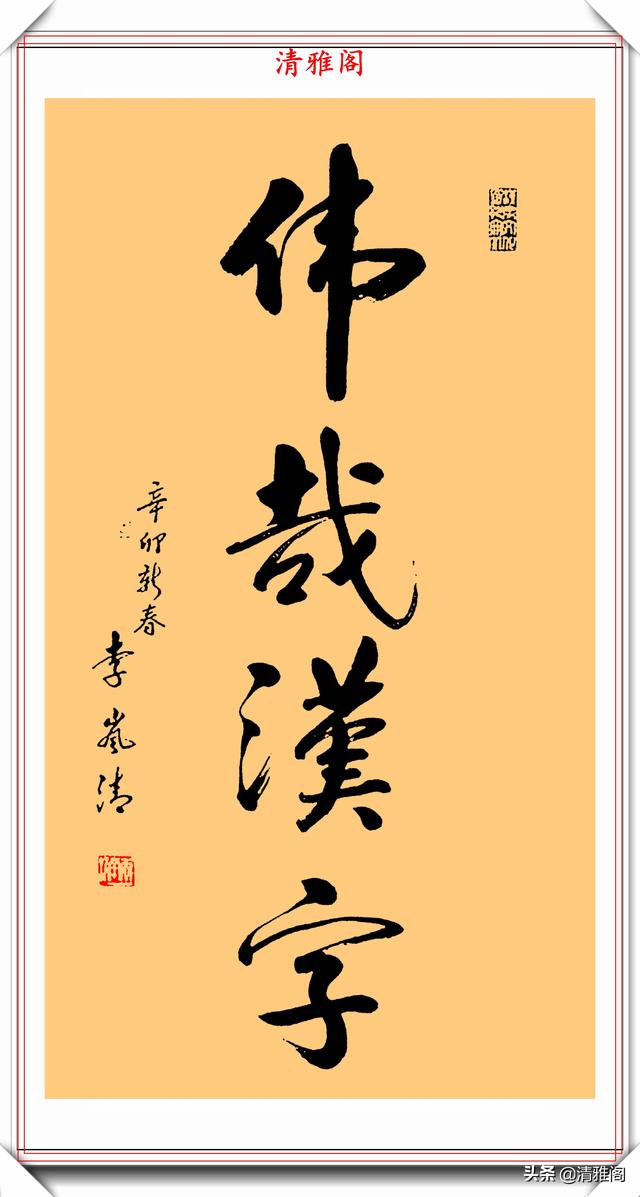 清雅阁
伟哉漢字
辛卯新春
李岚清
头条 @清雅阁